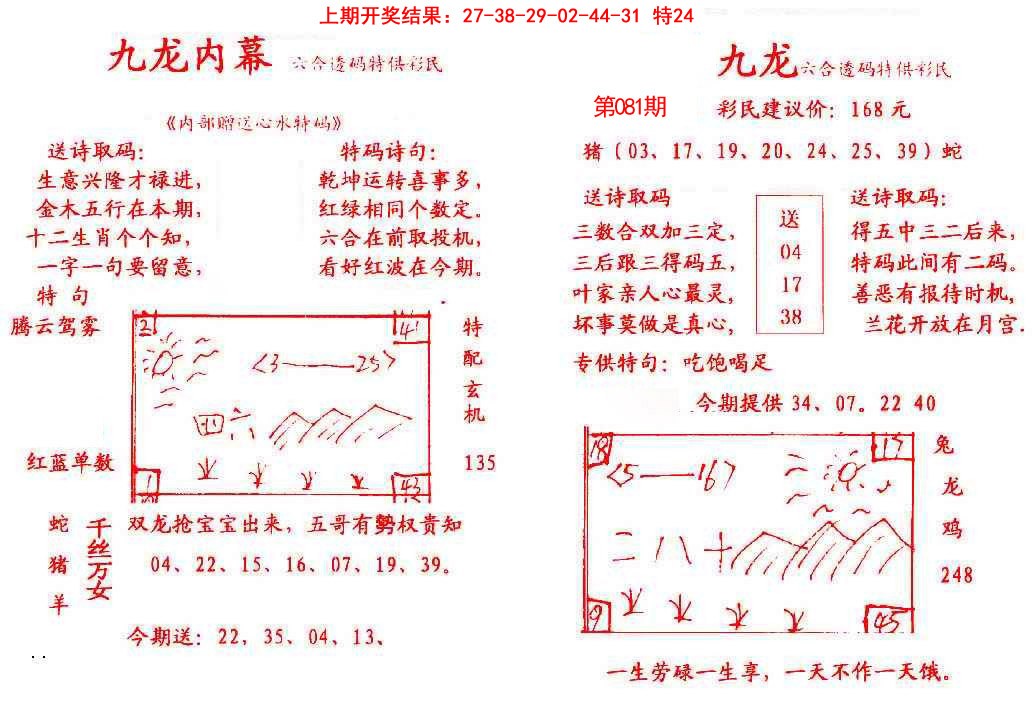 上期开奖结果：27-38-29-02-44-31 特24
九龙内幕 六合透码特供彩民
《内部赠送心水特码》
送诗取码：
生意兴隆才禄进，
金木五行在本期，
十二生肖个个知，
一字一句要留意，
特码诗句：
乾坤运转喜事多，
红绿相同个数定。
六合在前取投机，
看好红波在今期。
特 句
腾云驾雾
红蓝单数
21
41
<3——25>
四六
1
43
特配玄机
135
蛇猪羊
千丝万女
双龙抢宝宝出来，五哥有勢权贵知
04、22、15、16、07、19、39。
今期送：22，35、04、13、
九龙六合透码特供彩民
第081期
彩民建议价：168元
猪（03、17、19、20、24、25、39）蛇
送诗取码
三数合双加三定，
三后跟三得码五，
叶家亲人心最灵，
坏事莫做是真心，
送
04
17
38
送诗取码：
得五中三二后来，
特码此间有二码。
善恶有报待时机，
兰花开放在月宫.
专供特句：吃饱喝足
今期提供 34、07。22 40
18
17
<5——16>
二八十
9
45
兔
龙
鸡
248
一生劳碌一生享，一天不作一天饿。